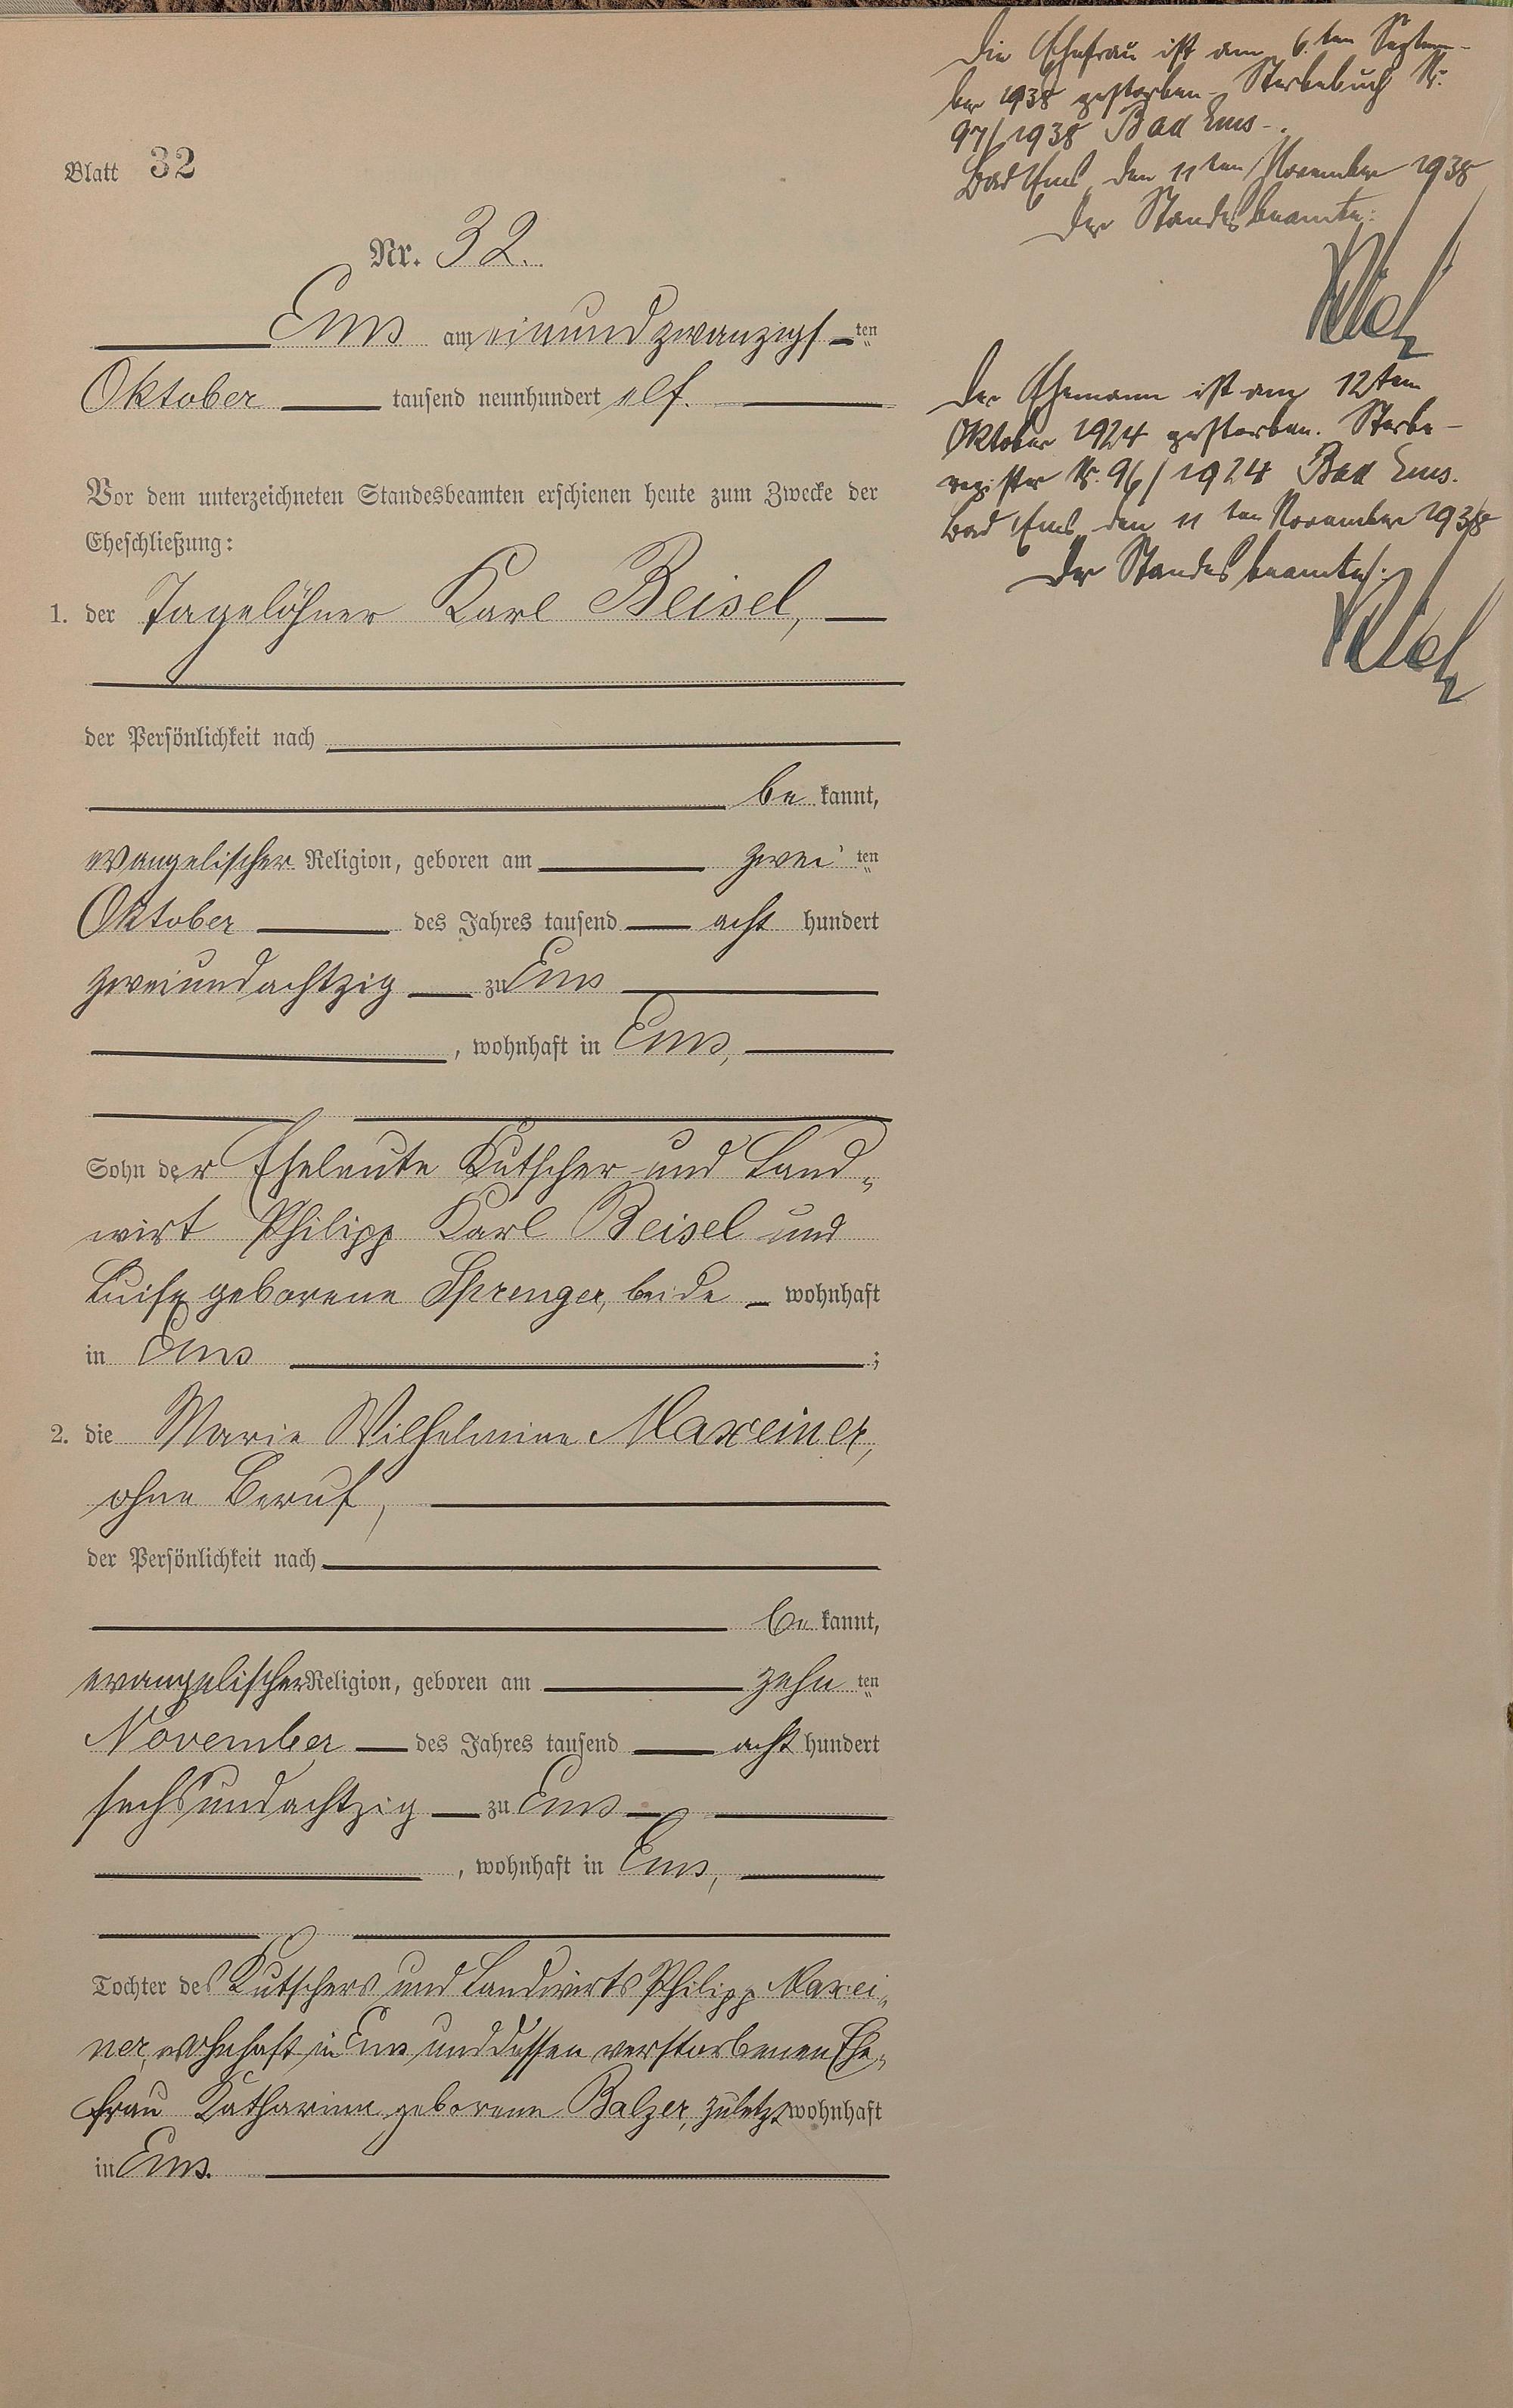 Blatt 32
Nr. 32.
Ems am einundzwanzigsten
Oktober tausend neunhundert elf.
Vor dem unterzeichneten Standesbeamten erschienen heute zum Zwecke der
Eheschließung:
1. der Tagelöhner Karl Beisel,
der Persönlichkeit nach
be kannt,
evangelischer Religion, geboren am zwei ten
Oktober des Jahres tausend acht hundert
zweiundachtzig zu Ems
, wohnhaft in Ems,
Sohn der Eheleute Kutscher und Land-
wirt Philipp Karl Beisel und
Luise geborene Sprenger, beide wohnhaft
in Ems ;
2. die Marie Wilhelmine Maxeiner,
ohne Beruf,
der Persönlichkeit nach
be kannt,
evangelischer Religion, geboren am zehn ten
November des Jahres tausend acht hundert
sechsundachtzig zu Ems
, wohnhaft in Ems,
Tochter des Kutschers und Landwirts Philipp Maxei-
ner, wohnhaft in Ems und dessen verstorbenen Ehe-
frau Katharina geborene Balzer, zuletzt wohnhaft
in Ems.
Die Ehefrau ist am 6.ten Septem-
ber 1938 gestorben - Sterbebuch Nr.
97/1938 Bad Ems -.
Bad Ems, den 11ten November 1938
Der Standesbeamte:
Der Ehemann ist am 12ten
Oktober 1924 gestorben. Sterbe-
register Nr. 96/1924 Bad Ems.
Bad Ems, den 11ten November 1938
Der Standesbeamte: